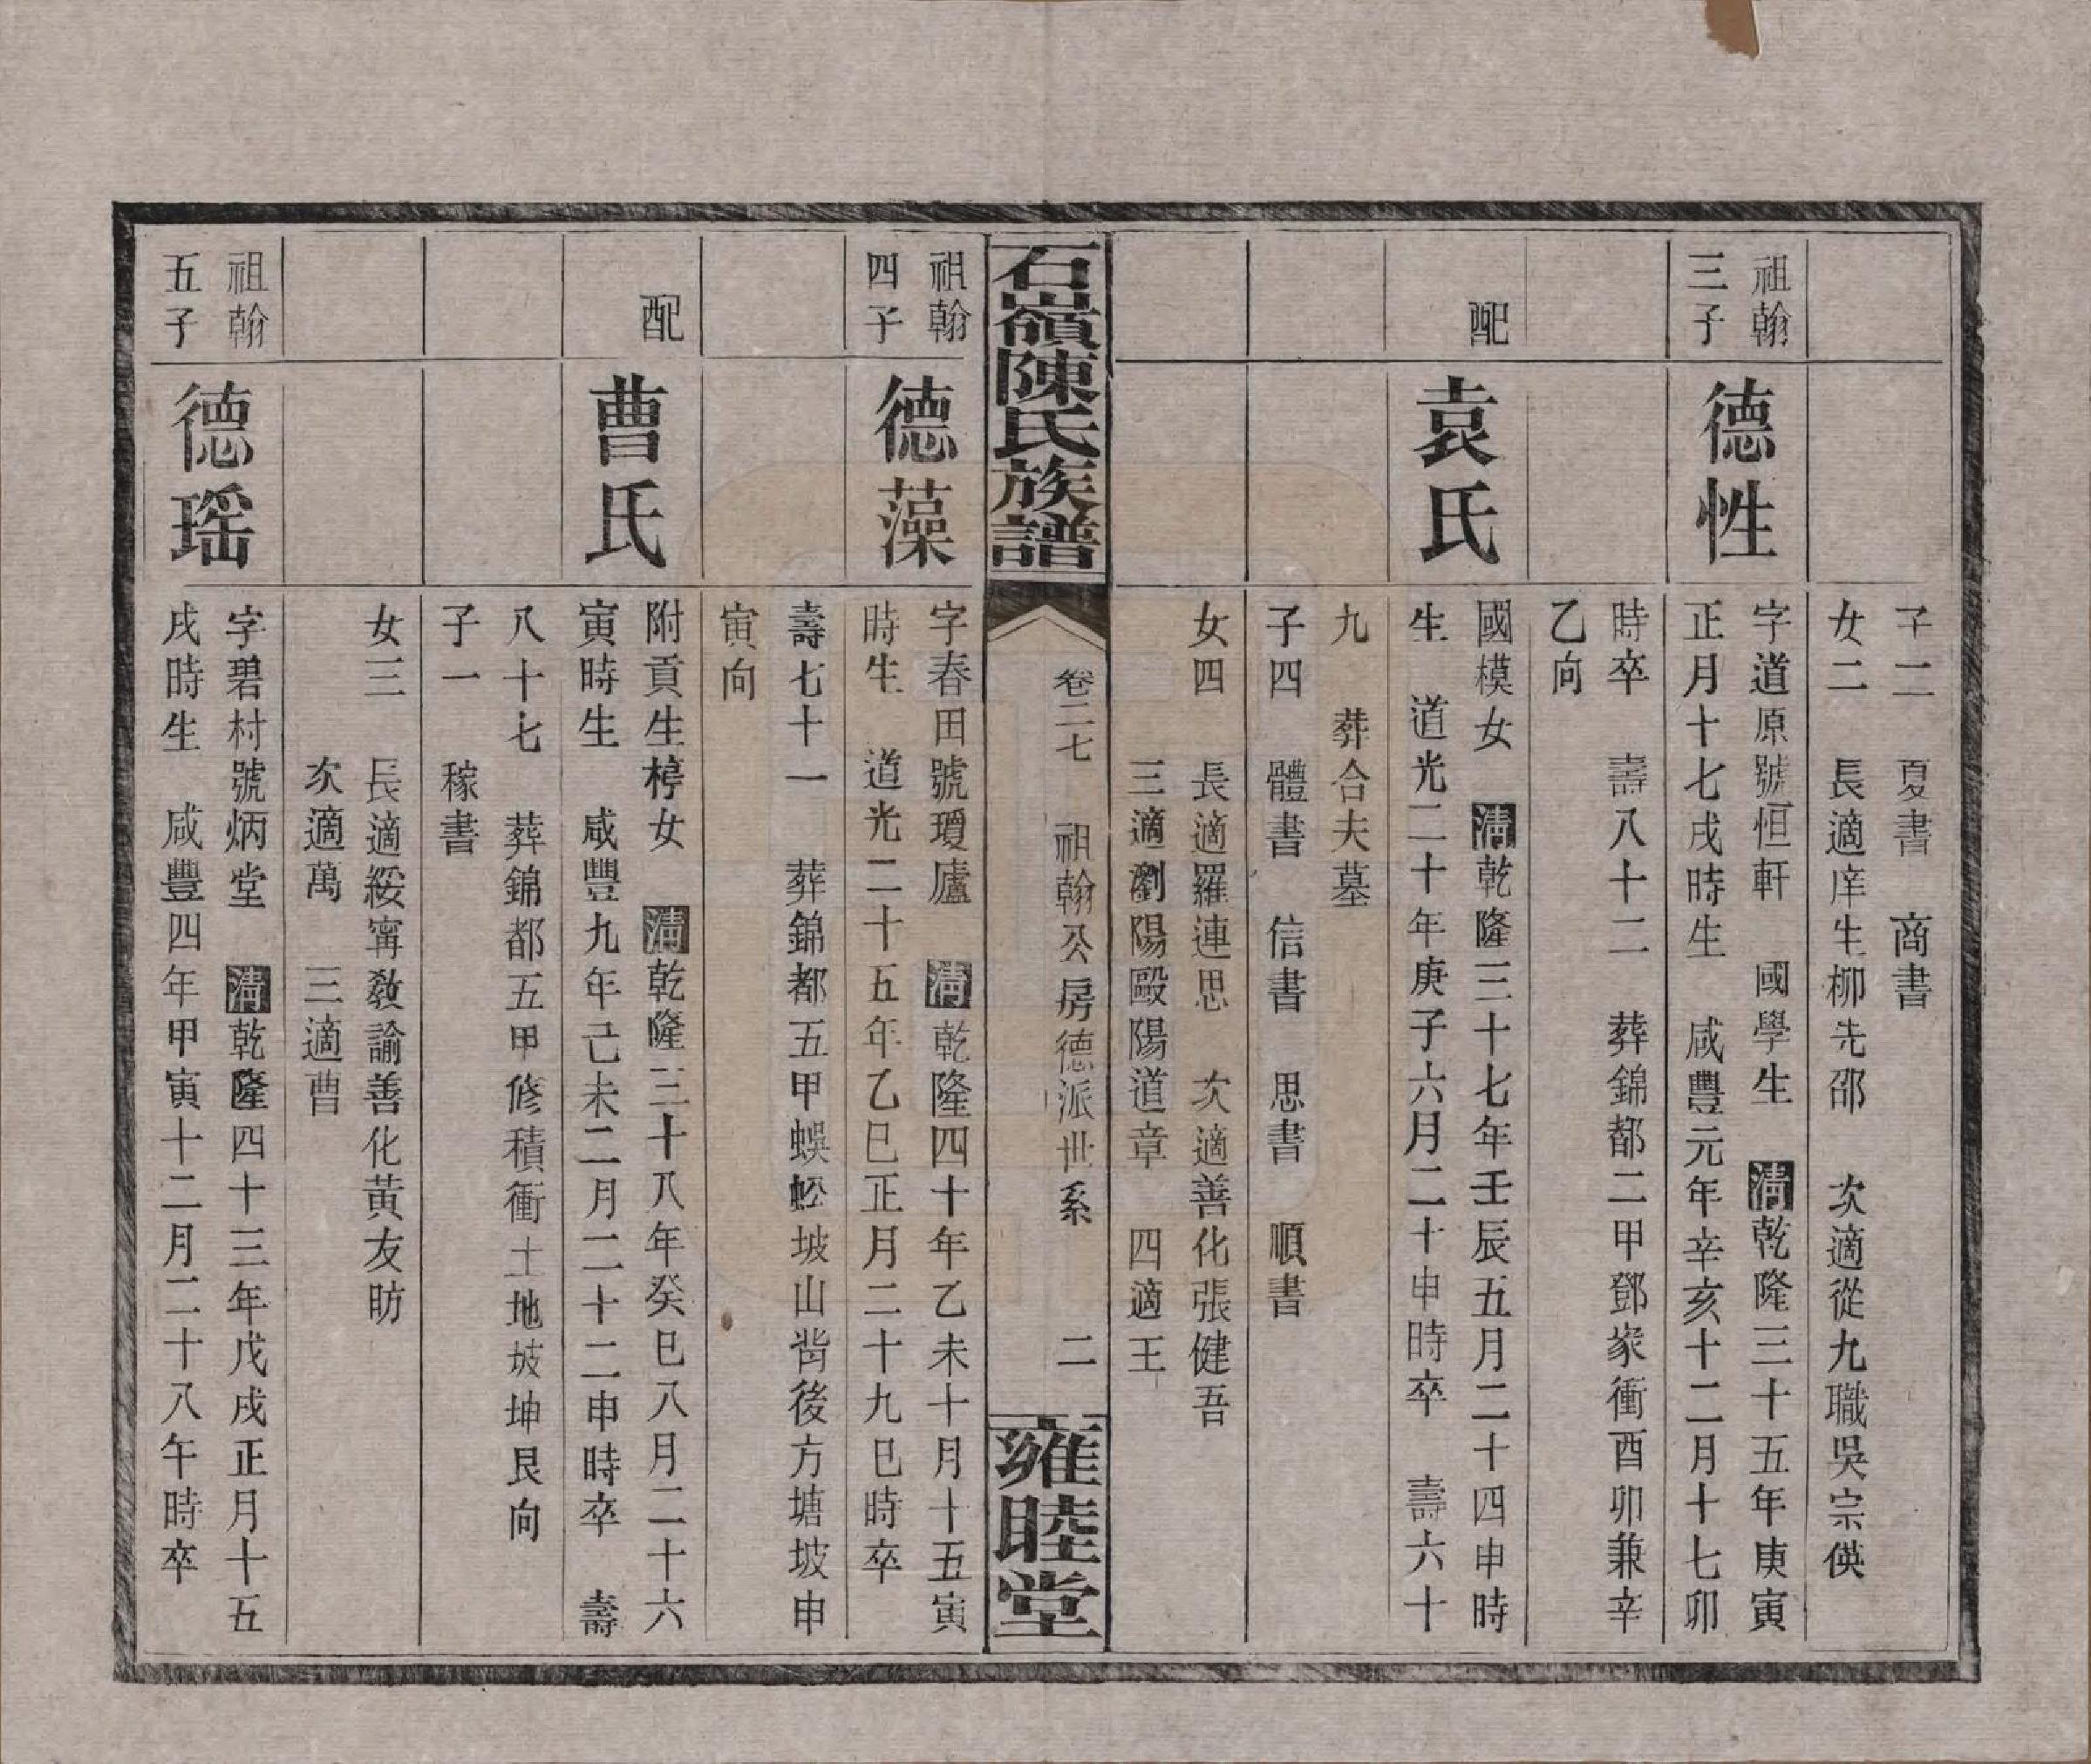 子二　夏書　商書
女二　長適庠生柳先邵　次適從九職吳宗偀
祖翰
三子
德性
字道原號恒軒　國學生　清乾隆三十五年庚寅
正月十七戌時生　咸豐元年辛亥十二月十七卯
時卒　壽八十二　葬錦都二甲鄧家衝酉卯兼辛
乙向
配
袁氏
國模女　清乾隆三十七年壬辰五月二十四申時
生　道光二十年庚子六月二十申時卒　壽六十
九　葬合夫墓
子四　體書　信書　思書　順書
女四　長適羅連思　次適善化張健吾
三適瀏陽歐陽道章　四適王
石嶺陳氏族譜
卷二七　祖翰公房德派世系　二
雍睦堂
祖翰
四子
德藻
字春田號瓊廬　清乾隆四十年乙未十月十五寅
時生　道光二十五年乙巳正月二十九巳時卒
壽七十一　葬錦都五甲蜈蚣坡山背後方塘坡申
寅向
配
曹氏
附貢生楟女　清乾隆三十八年癸巳八月二十六
寅時生　咸豐九年己未二月二十二申時卒　壽
八十七　葬錦都五甲修積衝土地坡坤艮向
子一　稼書
女三　長適綏甯教諭善化黃友昉
次適萬　三適曹
祖翰
五子
德瑶
字碧村號炳堂　清乾隆四十三年戊戌正月十五
戌時生　咸豐四年甲寅十二月二十八午時卒